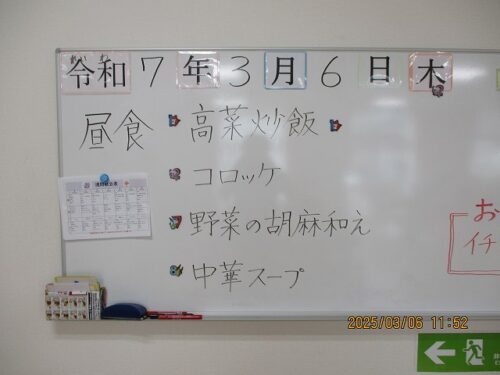 令和7年3月6日木
昼食
高菜炒飯
コロッケ
野菜の胡麻和え
中華スープ
お
イチ
2025/03/06 11:52